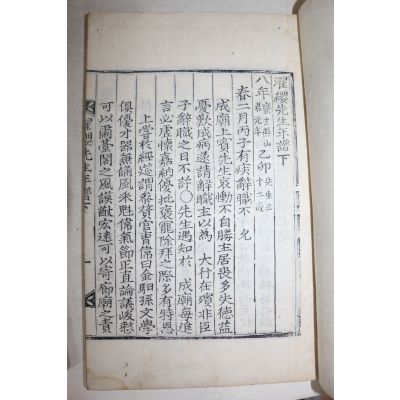 濯纓先生年譜下
八年 燕山君元年 乙卯 先生三十二歲
春二月丙子有疾辭職不 允
成廟上賓先生哀慟不自勝主居喪多失德益
憂歎成病遂請辭職主以為 大行在殯非臣
子辭職之日不許〇先生遇知於 成廟每進
言必虛懷嘉納優批褒寵除拜之際多有特恩
上嘗於經筵謂 賛官曹偉曰金馹孫文學
俱優才器無 風采 偉氣節正直論議峻慤
可以肅臺閣之風謨猷宏遠可以寄廊廟之責
濯纓先生年譜下
一